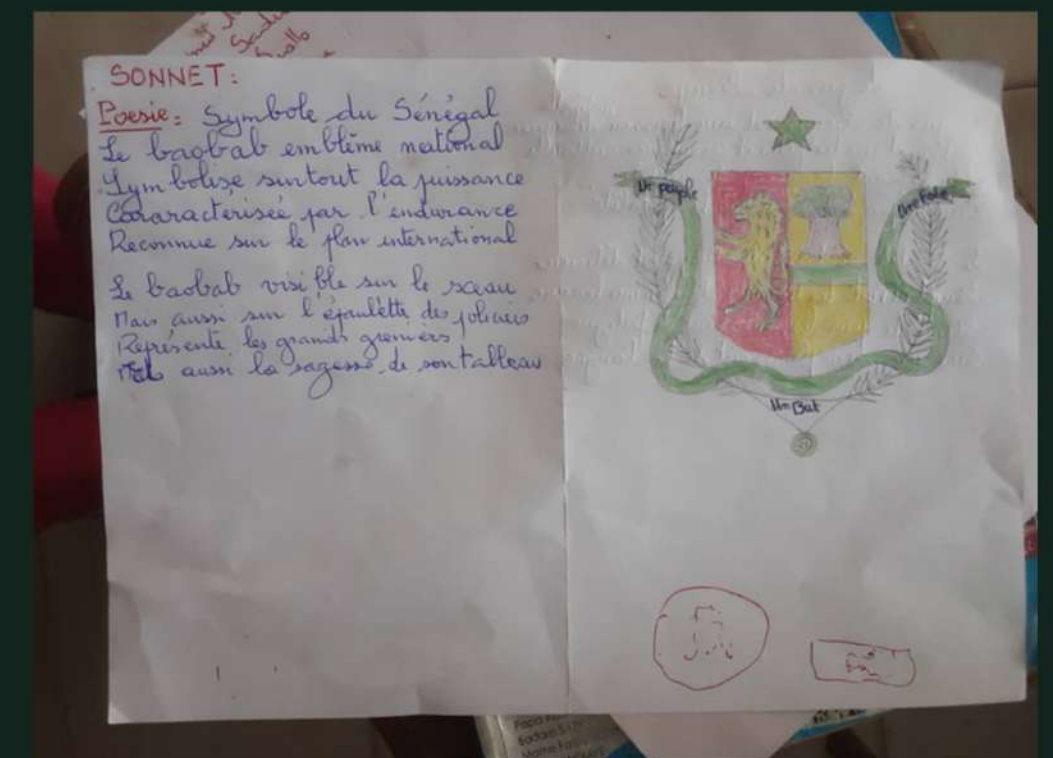 SONNET:
Poesie: Symbole du Sénégal
Le baobab emblème national
Symbolise surtout la puissance
Cararactérisée par l'endurance
Reconnue sur le plan international
Le baobab visible sur le sceau
Mais aussi sur l'épaulette des policiers
Représente les grands greniers
aussi la sagesse de son tableau
Un peuple
Une Foie
Un But